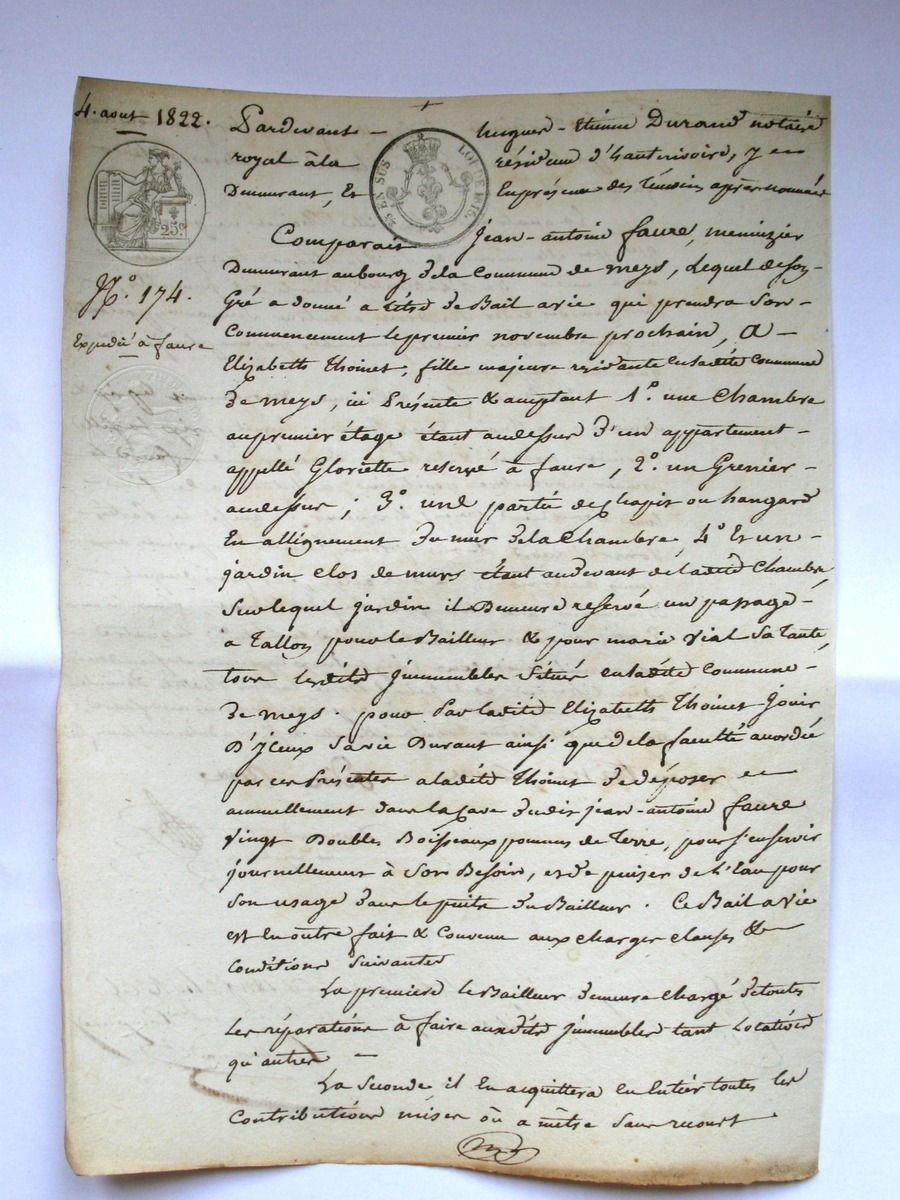 4. aout 1822.
Pardevant - hugues - Etienne Durand notaire
royal à la résidence d'hauterivoire, y en
Demeurant, Et En présence des témoins après nommés
EN SUS LOI DE
25c
Comparait Jean-antoine faure, menuizier
Demeurant au bourg de la Commune de meys, Lequel de son
N.o 174.
Gré a donné a titre de Bail a vie qui prendra son
Commencement le premier novembre prochain, A -
Expédié à faure
Elizabeth Thoinet, fille majeure residante en ladite Commune
de meys, ici Présente & acceptant 1.o une Chambre
au premier étage étant audessus d'un appartement -
appellé Gloriette reservé à faure, 2.o un Grenier -
audessus ; 3.o une partie de chapit ou hangard
En allignement du mur de la Chambre 4.o Et un -
jardin clos de murs étant audevant de ladite Chambre
Sur lequel jardin il Demeure reservé un passage -
a Tallon pour le Bailleur & pour marie Vial Sa Tante
tous lesdits Jmmeubles Situés en ladite Commune -
de meys. pour Par ladite Elizabeth Thoinet Jouir
D'Jceux Sa vie Durant ainsi que de la faculté accordée
par ces Présentes a ladite Thoinet de déposer
annuellement dans la Cave dudit jean-antoine faure
Vingt Doubles Boisseaux pommes de Terre, pour s'en servir
journellement à Son Besoin, et de puiser de l'Eau pour
Son usage dans le puits du Bailleur. Ce Bail a Vie
est En outre fait & Convenu aux charges clauses &
Conditions Suivantes
La premiere le Bailleur demeure chargé de toutes
les réparations à faire auxdits Jmmeubles tant Locatives
qu'autres -
La Seconde il En acquittera en Entier toutes les
Contributions mises où a mêtre Sans recours